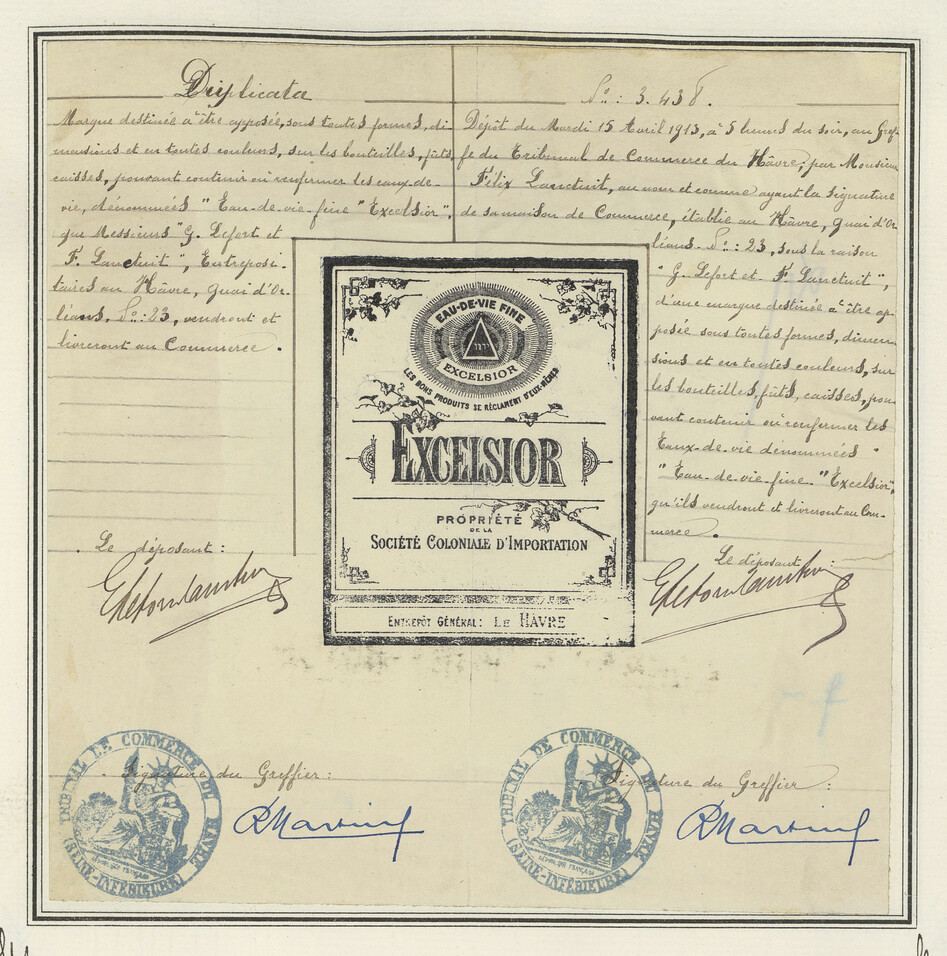 Duplicata
Marque destinée à être apposée, sous toutes formes, di-
mensions et en toutes couleurs, sur les bouteilles, fûts,
caisses, pouvant contenir ou renfermer les eaux-de-
vie, dénommées "Eau-de-vie-fine "Excelsior",
que Messieurs "G. Lefort et
F. Lanctuit", Entreposi-
taires au Hâvre, Quai d'Or-
léans. No: 23, vendront et
livreront au Commerce.
Le déposant:
No: 3.438.
Dépôt du Mardi 15 Avril 1913, à 5 heures du soir, au Gref-
fe du Tribunal de Commerce du Hâvre, par Monsieur
Félix Lanctuit, au nom et comme ayant la signature
de sa maison de Commerce, établie au Hâvre, Quai d'Or-
léans. No: 23, sous la raison
"G. Lefort et F. Lanctuit",
d'une marque destinée à être ap-
posée sous toutes formes, dimen-
sions et en toutes couleurs, sur
les bouteilles, fûts, caisses, pou-
vant contenir ou renfermer les
Eaux-de-vie dénommées
"Eau-de-vie-fine "Excelsior",
qu'ils vendront et livreront au Com-
merce.
Le déposant:
EAU-DE-VIE FINE
EXCELSIOR
LES BONS PRODUITS SE RÉCLAMENT D'EUX-MÊMES
EXCELSIOR
PROPRIÉTÉ
DE LA
SOCIÉTÉ COLONIALE D'IMPORTATION
ENTREPÔT GÉNÉRAL: LE HÂVRE
Signature du Greffier:
TRIBUNAL DE COMMERCE DU HAVRE
(SEINE-INFÉRIEURE)
RÉPUBLIQUE FRANÇAISE
Signature du Greffier:
TRIBUNAL DE COMMERCE DU HAVRE
(SEINE-INFÉRIEURE)
RÉPUBLIQUE FRANÇAISE